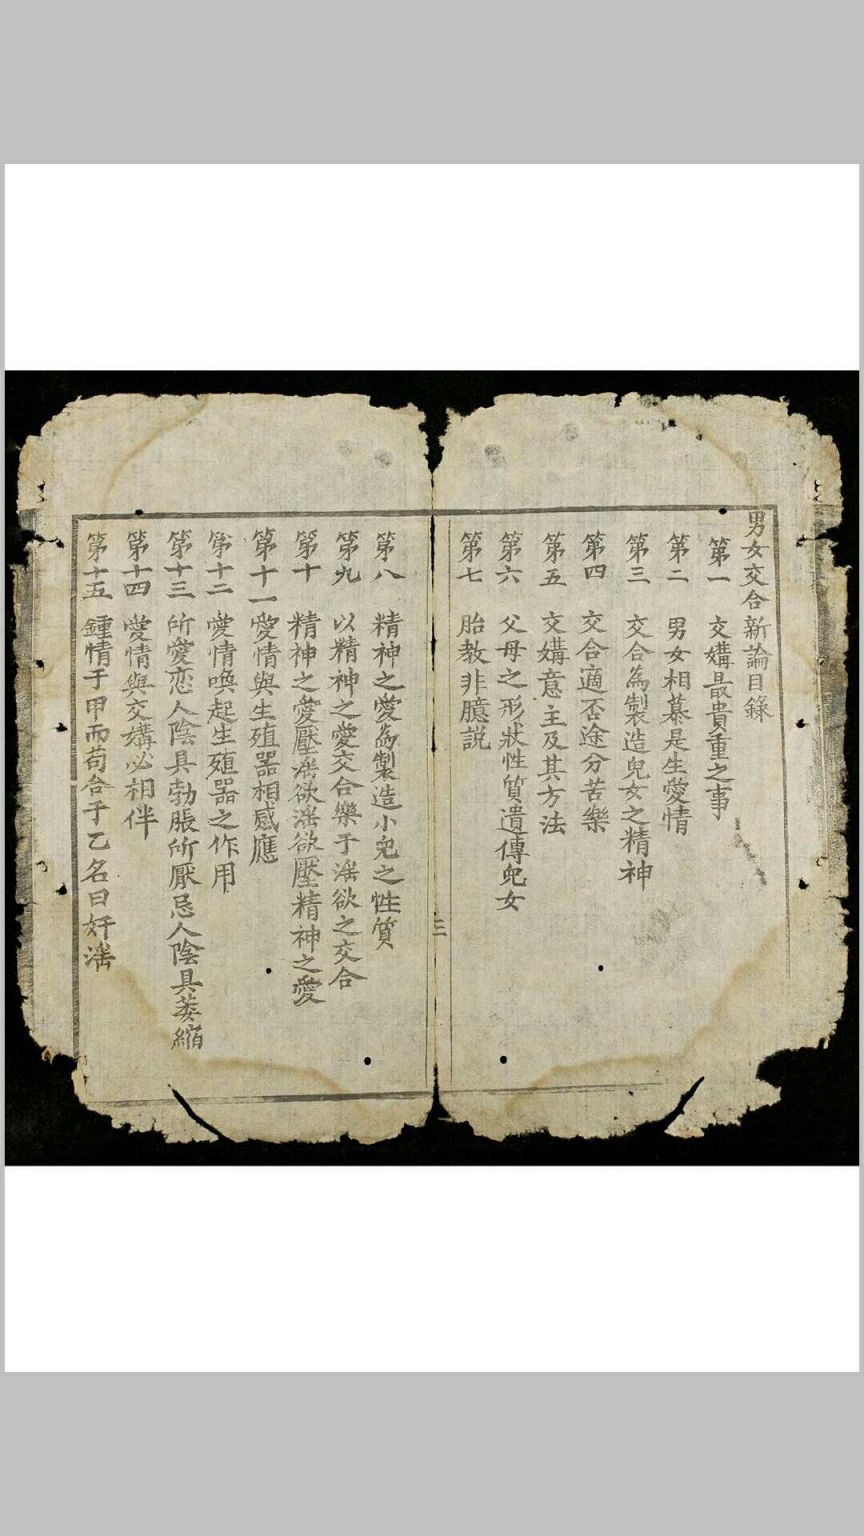 男女交合新論目錄
第一 交媾最貴重之事
第二 男女相慕是生愛情
第三 交合為製造兒女之精神
第四 交合適否途分苦樂
第五 交媾意主及其方法
第六 父母之形狀性質遺傳兒女
第七 胎教非臆説
三
第八 精神之愛為製造小兒之性質
第九 以精神之愛交合樂于滛欲之交合
第十 精神之愛壓滛欲滛欲壓精神之愛
第十一 愛情與生殖器相感應
第十二 愛情喚起生殖器之作用
第十三 所愛恋人陰具勃脹所厭忌人陰具萎縮
第十四 愛情與交媾必相伴
第十五 鍾情于甲而苟合于乙名曰奸滛